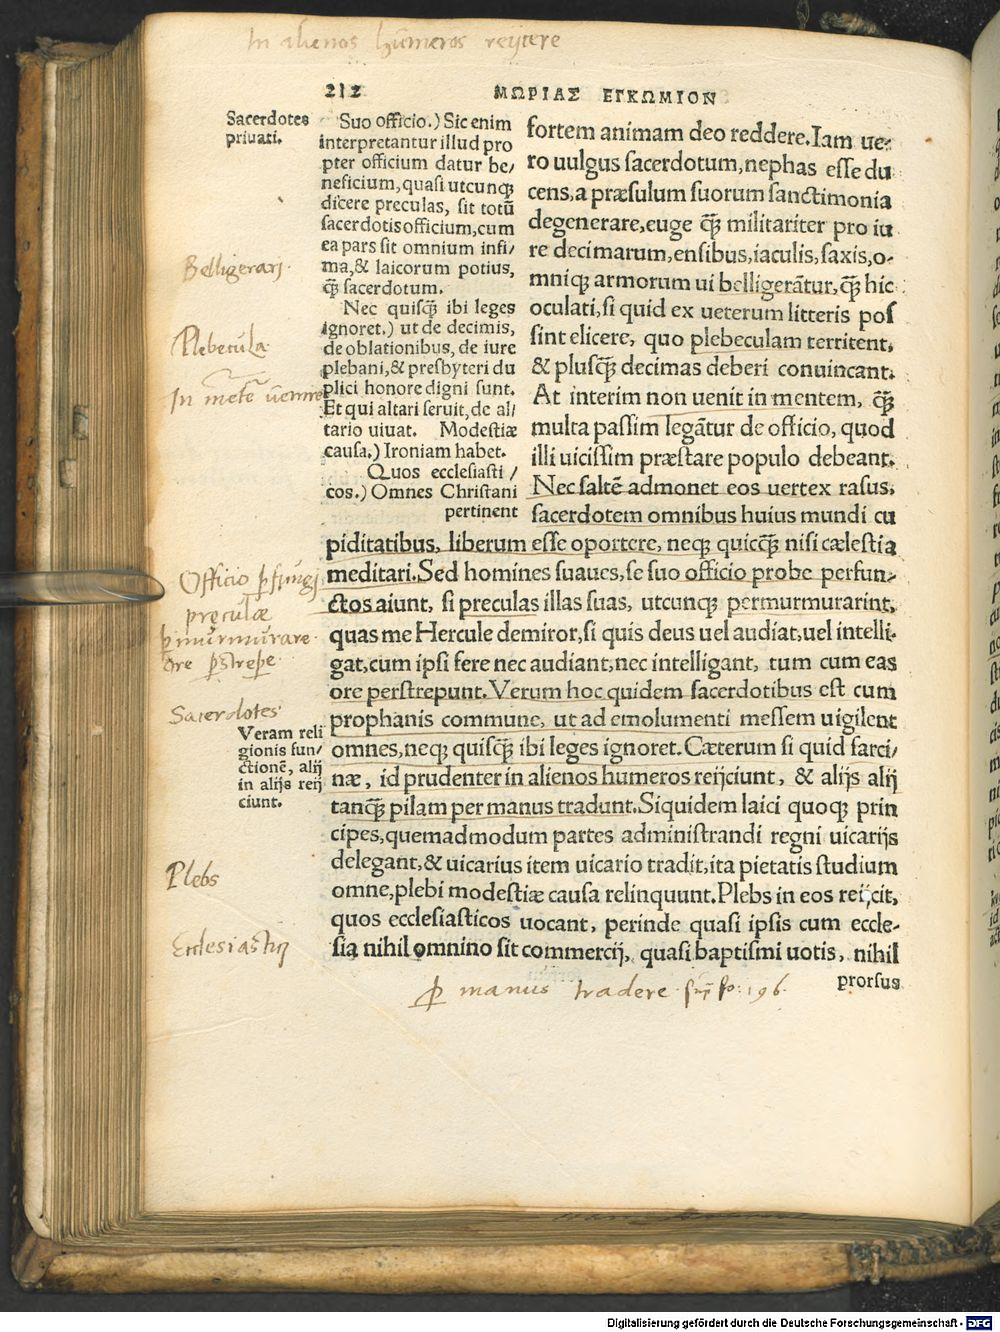 In alienos humeros reijcere
212 ΜΩΡΙΑΣ ΕΓΚΩΜΙΟΝ
Sacerdotes
priuati.
Suo officio.) Sic enim
interpretantur illud pro
pter officium datur be/
neficium, quasi utcunq;
dicere preculas, sit totū
sacerdotis officium, cum
ea pars sit omnium infi/
ma, & laicorum potius,
q̃ sacerdotum.
Nec quisq̃ ibi leges
ignoret.) ut de decimis,
de oblationibus, de iure
plebani, & presbyteri du
plici honore digni sunt.
Et qui altari seruit, de al/
tario uiuat. Modestiæ
causa.) Ironiam habet.
Quos ecclesiasti/
cos.) Omnes Christani
pertinent
fortem animam deo reddere. Iam ue-
ro uulgus sacerdotum, nephas esse du
cens, a præsulum suorum sanctimonia
degenerare, euge q̃ militariter pro iu
re decimarum, ensibus, iaculis, saxis, o-
mniq; armorum ui belligerātur, q̃ hic
oculati, si quid ex ueterum litteris pos
sint elicere, quo plebeculam territent,
& plusq̃ decimas deberi conuincant.
At interim non uenit in mentem, q̃
multa passim legātur de officio, quod
illi uicissim præstare populo debeant.
Nec saltē admonet eos uertex rasus,
sacerdotem omnibus huius mundi cu
piditatibus, liberum esse oportere, neq; quicq̃ nisi cælestia
meditari. Sed homines suaues, se suo officio probe perfun-
ctos aiunt, si preculas illas suas, utcunq; permurmurarint,
quas me Hercule demiror, si quis deus uel audiat, uel intelli-
gat, cum ipsi fere nec audiant, nec intelligant, tum cum eas
ore perstrepunt. Verum hoc quidem sacerdotibus est cum
prophanis commune, ut ad emolumenti messem uigilent
omnes, neq; quisq̃ ibi leges ignoret. Cæterum si quid sarci/
næ, id prudenter in alienos humeros reijciunt, & alijs alij
tanq̃ pilam per manus tradunt. Siquidem laici quoq; prin
cipes, quemadmodum partes administrandi regni uicarijs
delegant, & uicarius item uicario tradit, ita pietatis studium
omne, plebi modestiæ causa relinquunt. Plebs in eos reijcit,
quos ecclesiasticos uocant, perinde quasi ipsis cum eccle-
sia nihil omnino sit commercij, quasi baptismi uotis, nihil
prorsus
Belligerarj.
Plebecula
In mētē uenire
Officio ꝑfungj
preculæ
ꝑmurmurare.
ore ꝑstrepe
Sacerdotes
Veram reli
gionis fun/
ctionē, alij
in alijs reij
ciunt.
Plebs
Ecclesiasticj
ꝑ manus tradere. fo: 196.
Digitalisierung gefördert durch die Deutsche Forschungsgemeinschaft - DFG